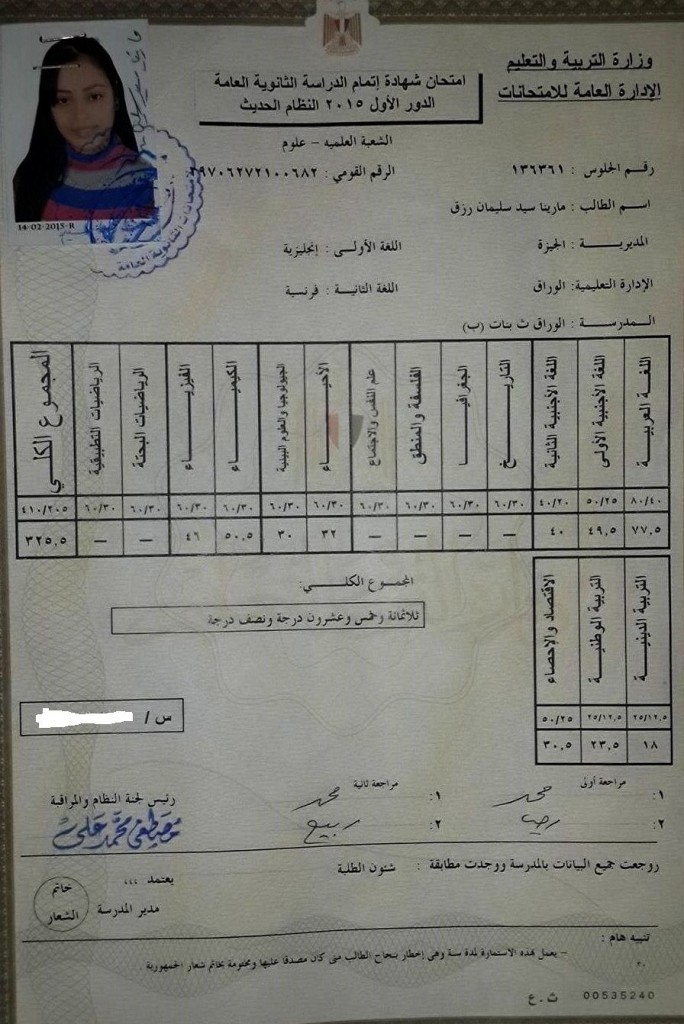 وزارة التربية والتعليم
الإدارة العامة للامتحانات
امتحان شهادة إتمام الدراسة الثانوية العامة
الدور الأول ٢٠١٥ النظام الحديث
الشعبة العلميه - علوم
رقم الجلوس : ١٣٦٣٦١
الرقم القومي : ٩٧٠٦٢٧٢١٠٠٦٨٢
اسم الطالب : مارينا سيد سليمان رزق
المديرية : الجيزة
اللغة الأولى : إنجليزية
الإدارة التعليمية: الوراق
اللغة الثانية : فرنسية
المدرسة : الوراق ث بنات (ب)
14-02-2015-R
اللغة العربية
اللغة الأجنبية الأولى
اللغة الأجنبية الثانية
التاريخ
الجغرافيا
الفلسفة والمنطق
علم النفس والاجتماع
الأحياء
الجيولوجيا والعلوم البيئية
الكيمياء
الفيزياء
الرياضيات البحتة
الرياضيات التطبيقية
المجموع الكلي
٨٠/٤٠ ٥٠/٢٥ ٤٠/٢٠ ٦٠/٣٠ ٦٠/٣٠ ٦٠/٣٠ ٦٠/٣٠ ٦٠/٣٠ ٦٠/٣٠ ٦٠/٣٠ ٦٠/٣٠ ٦٠/٣٠ ٦٠/٣٠ ٤١٠/٢٠٥
٧٧,٥ ٤٩,٥ ٤٠ — — — — ٣٢ ٣٠ ٥٠,٥ ٤٦ — — ٣٢٥,٥
التربية الدينية
التربية الوطنية
الاقتصاد والإحصاء
٢٥/١٢,٥ ٢٥/١٢,٥ ٥٠/٢٥
١٨ ٢٣,٥ ٣٠,٥
المجموع الكلي:
ثلاثمائة وخمس وعشرون درجة ونصف درجة
س /
مراجعة أولى
١: محمد
٢: رضا
مراجعة ثانية
١: محمد
٢: ربيع
رئيس لجنة النظام والمراقبة
مصطفى محمد على
روجعت جميع البيانات بالمدرسة ووجدت مطابقة : شئون الطلبة
يعتمد ،،،
مدير المدرسة
خاتم
الشعار
تنبيه هام :
- يعمل بهذه الاستمارة لمدة سنة وهى إخطار بنجاح الطالب متى كان مصدقا عليها ومختومة بخاتم شعار الجمهورية
00535240 ث.ع